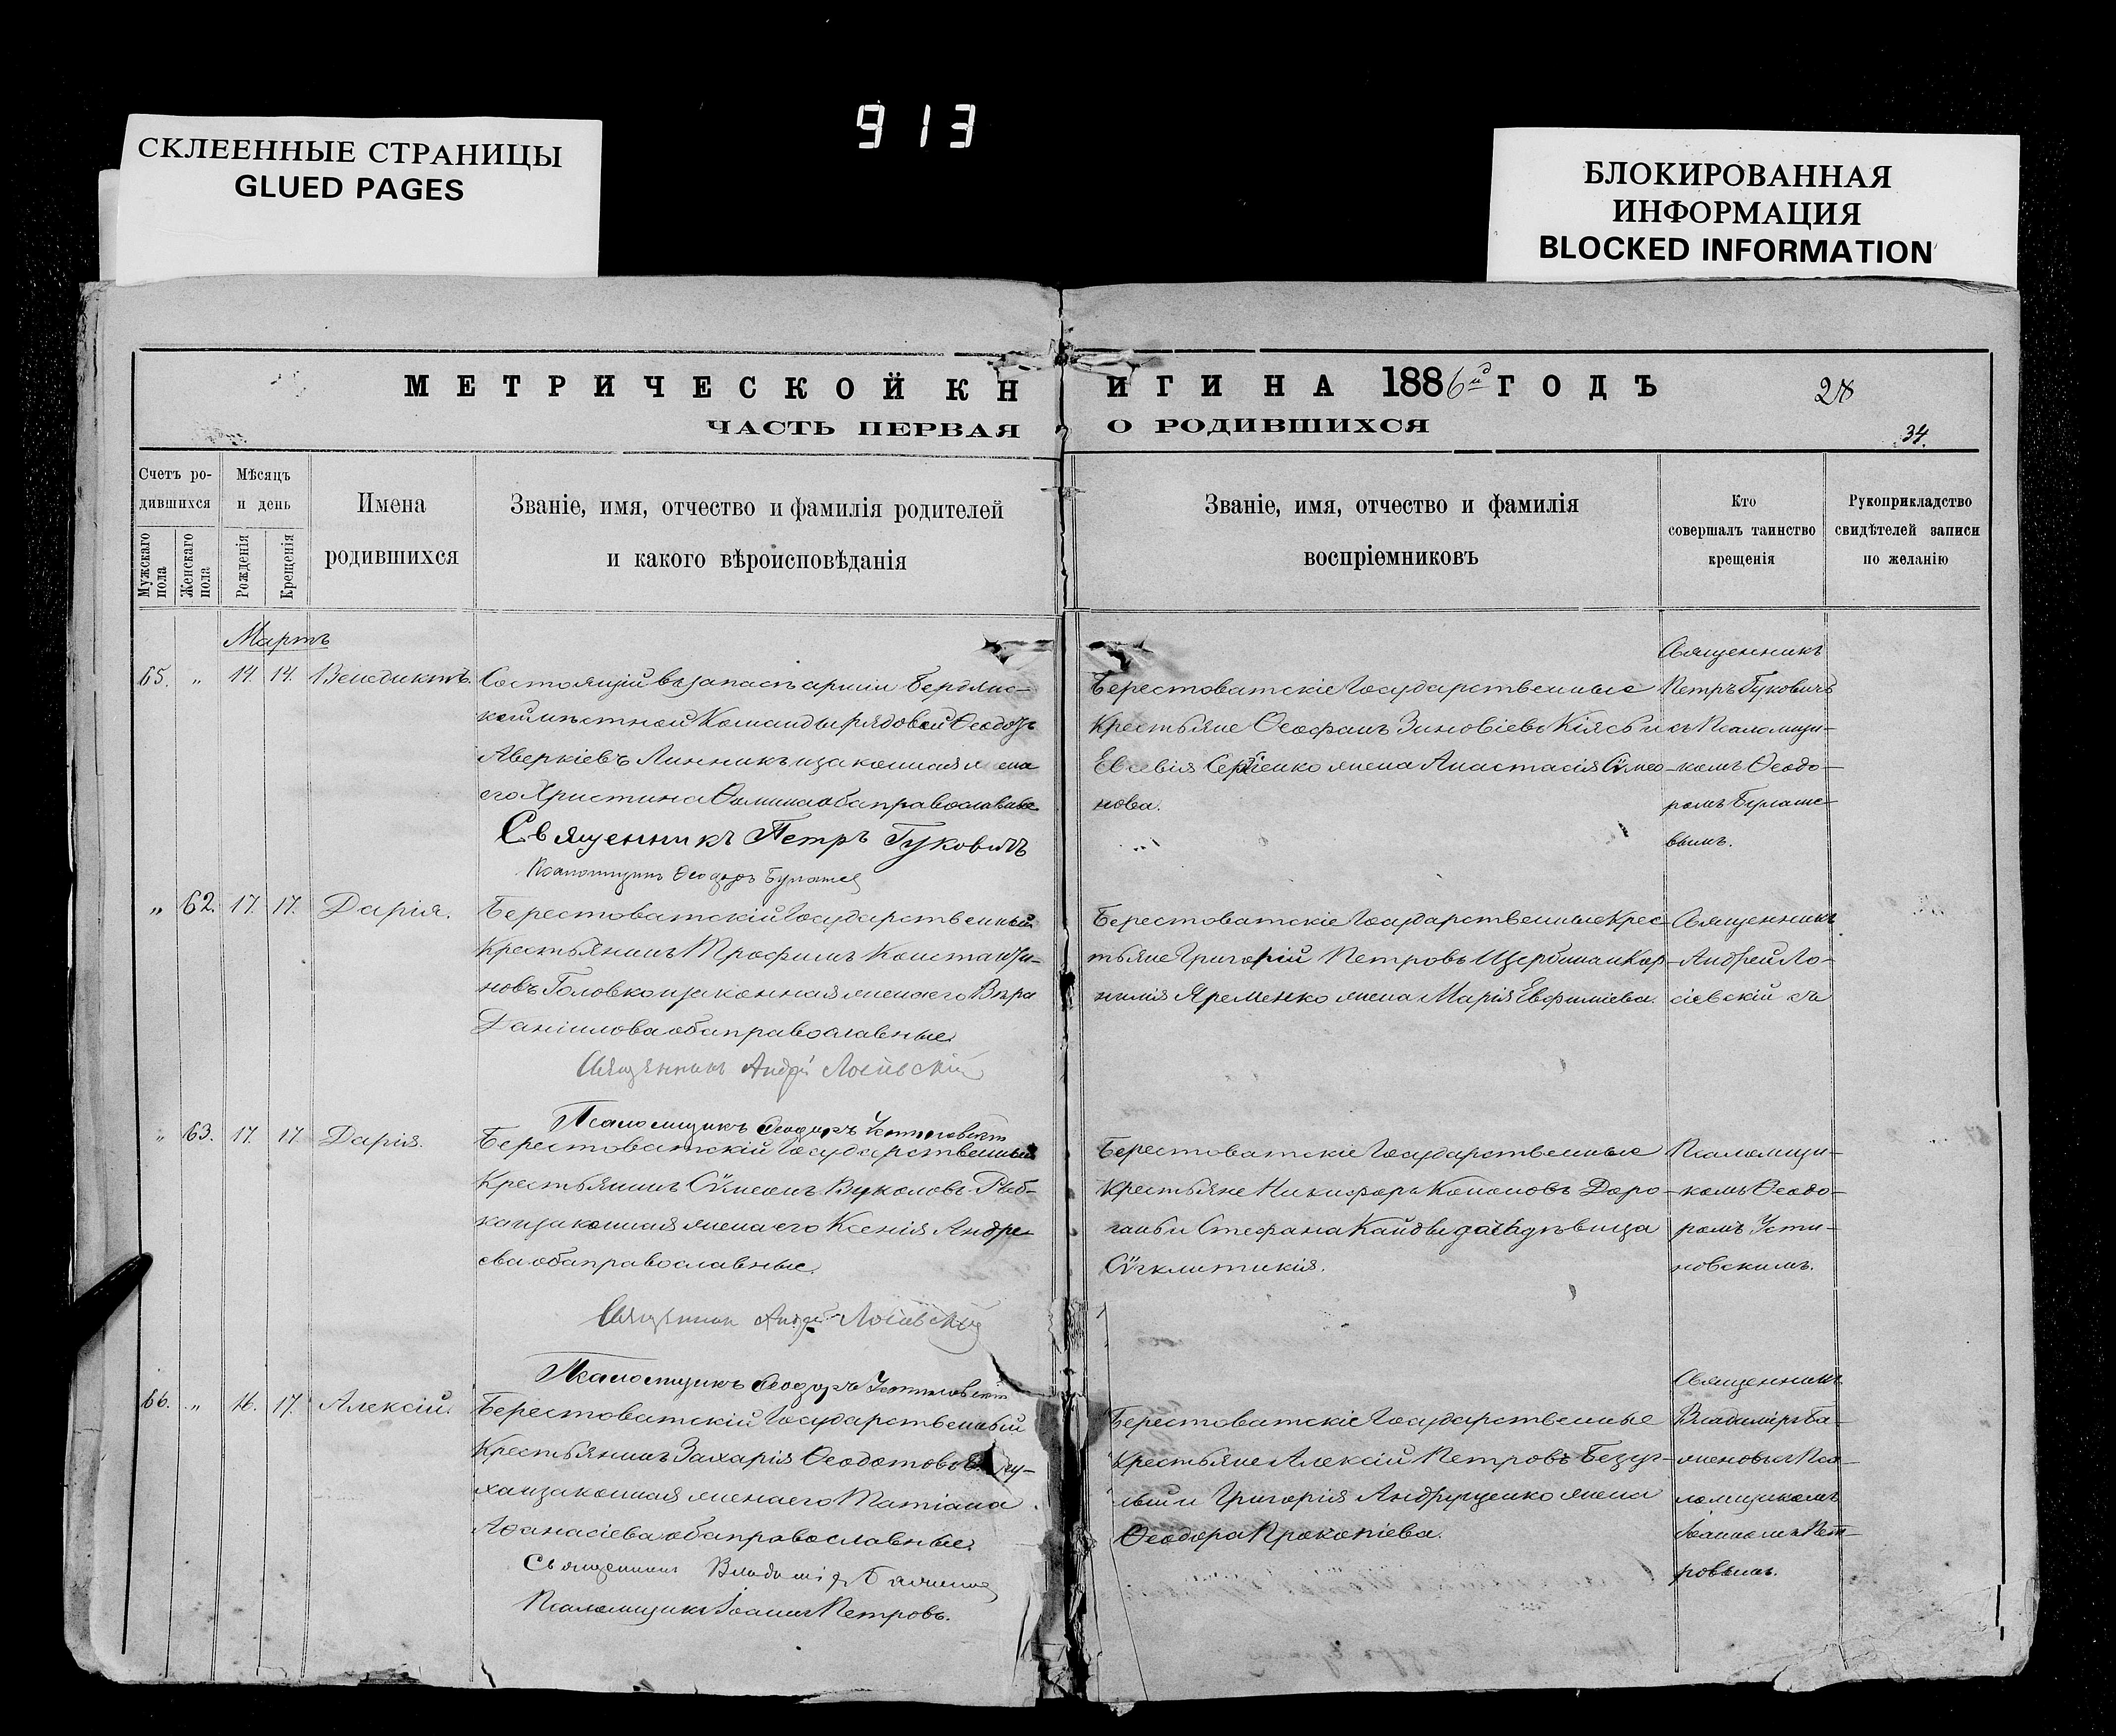 913
СКЛЕЕННЫЕ СТРАНИЦЫ
GLUED PAGES
БЛОКИРОВАННАЯ
ИНФОРМАЦИЯ
BLOCKED INFORMATION
МЕТРИЧЕСКОЙ КНИГИ НА 1886й ГОДЪ
28
ЧАСТЬ ПЕРВАЯ О РОДИВШИХСЯ
34.
Счетъ ро-
дившихся
Мужскаго пола
Женскаго пола
Мѣсяцъ
и день
Рожденія
Крещенія
Имена
родившихся
Званіе, имя, отчество и фамилія родителей
и какого вѣроисповѣданія
Званіе, имя, отчество и фамилія
воспріемниковъ
Кто
совершалъ таинство
крещенія
Рукоприкладство
свидѣтелей записи
по желанію
Мартъ
65. " 14. 14. Венедиктъ.
Состоящій въ запасѣ арміи Бердянс-
кой мѣстной Команды рядовой Ѳеодоръ
Аверкіевъ Линникъ и законная жена
его Христина Ѳомина оба православные
Священникъ Петръ Гуковичъ
Псаломщикъ Ѳеодоръ
Берестоватскіе Государственные
Крестьяне Ѳеофанъ Зиновіевъ и
Евсевія Сергіенко жена Анастасія Сѵмео-
нова.
Священникъ
Петръ Гуковичъ
съ Псаломщи-
комъ Ѳеодо-
ромъ
вымъ.
" 62. 17. 17. Дарія.
Берестоватскій Государственный
Крестьянинъ Трофимъ Константи-
новъ Головко и законная жена его Вѣра
Даніилова оба православные.
Священникъ Андрей Лосіевскій
Псаломщикъ Ѳеодоръ Устиновскій
Берестоватскіе Государственные Крес-
тьяне Григорій Петровъ Щербина и Кор-
нилія Яременко жена Марія Евфиміева.
Священникъ
Андрей Ло-
сіевскій съ
" 63. 17. 17. Дарія.
Берестоватскій Государственный
Крестьянинъ Сѵмеонъ Вуколовъ Рыб-
ка и законная жена его Ксенія Андре-
ева оба православные.
Священникъ Андрей Лосіевскій
Псаломщикъ Ѳеодоръ Устиновскій
Берестоватскіе Государственные
Крестьяне Никифоръ Кононовъ Доро-
гань и Стефана Кайды дочь дѣвица
Сѵгклитикія.
Псаломщи-
комъ Ѳеодо-
ромъ Усти-
новскимъ.
66. " 16. 17. Алексій.
Берестоватскій Государственный
Крестьянинъ Захарія Ѳеодотовъ
ха и законная жена его Татіана
Аѳанасіева оба православные.
Священникъ Владиміръ Баженовъ
Псаломщикъ Іоаннъ Петровъ.
Берестоватскіе Государственные
Крестьяне Алексій Петровъ Безуг-
лый и Григорія Андрущенко жена
Ѳеодора Прокопіева.
Священникъ
Владиміръ Ба-
женовъ съ Пса-
ломщикомъ
Іоанномъ Пет-
ровымъ.